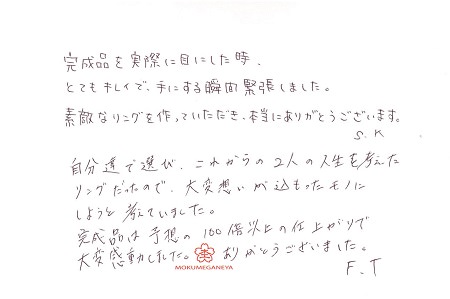 完成品を実際に目にした時、
とてもキレイで、手にする瞬間緊張しました。
素敵なリングを作っていただき、本当にありがとうございます。
S.K
自分達で選び、これからの2人の人生を考えた
リングだったので、大変想いが込もったモノに
しようと考えていました。
完成品は予想の100倍以上の仕上がりで
大変感動しました。ありがとうございました。
MOKUMEGANEYA
F.T